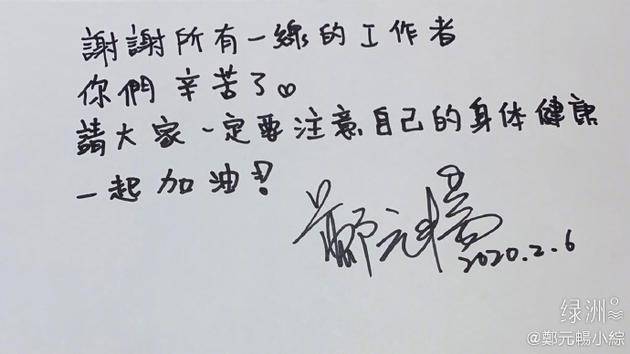 謝謝所有一線的工作者
你們辛苦了♡
請大家一定要注意自己的身体健康
一起加油!
鄭元暢
2020.2.6
绿洲
@鄭元暢小綜